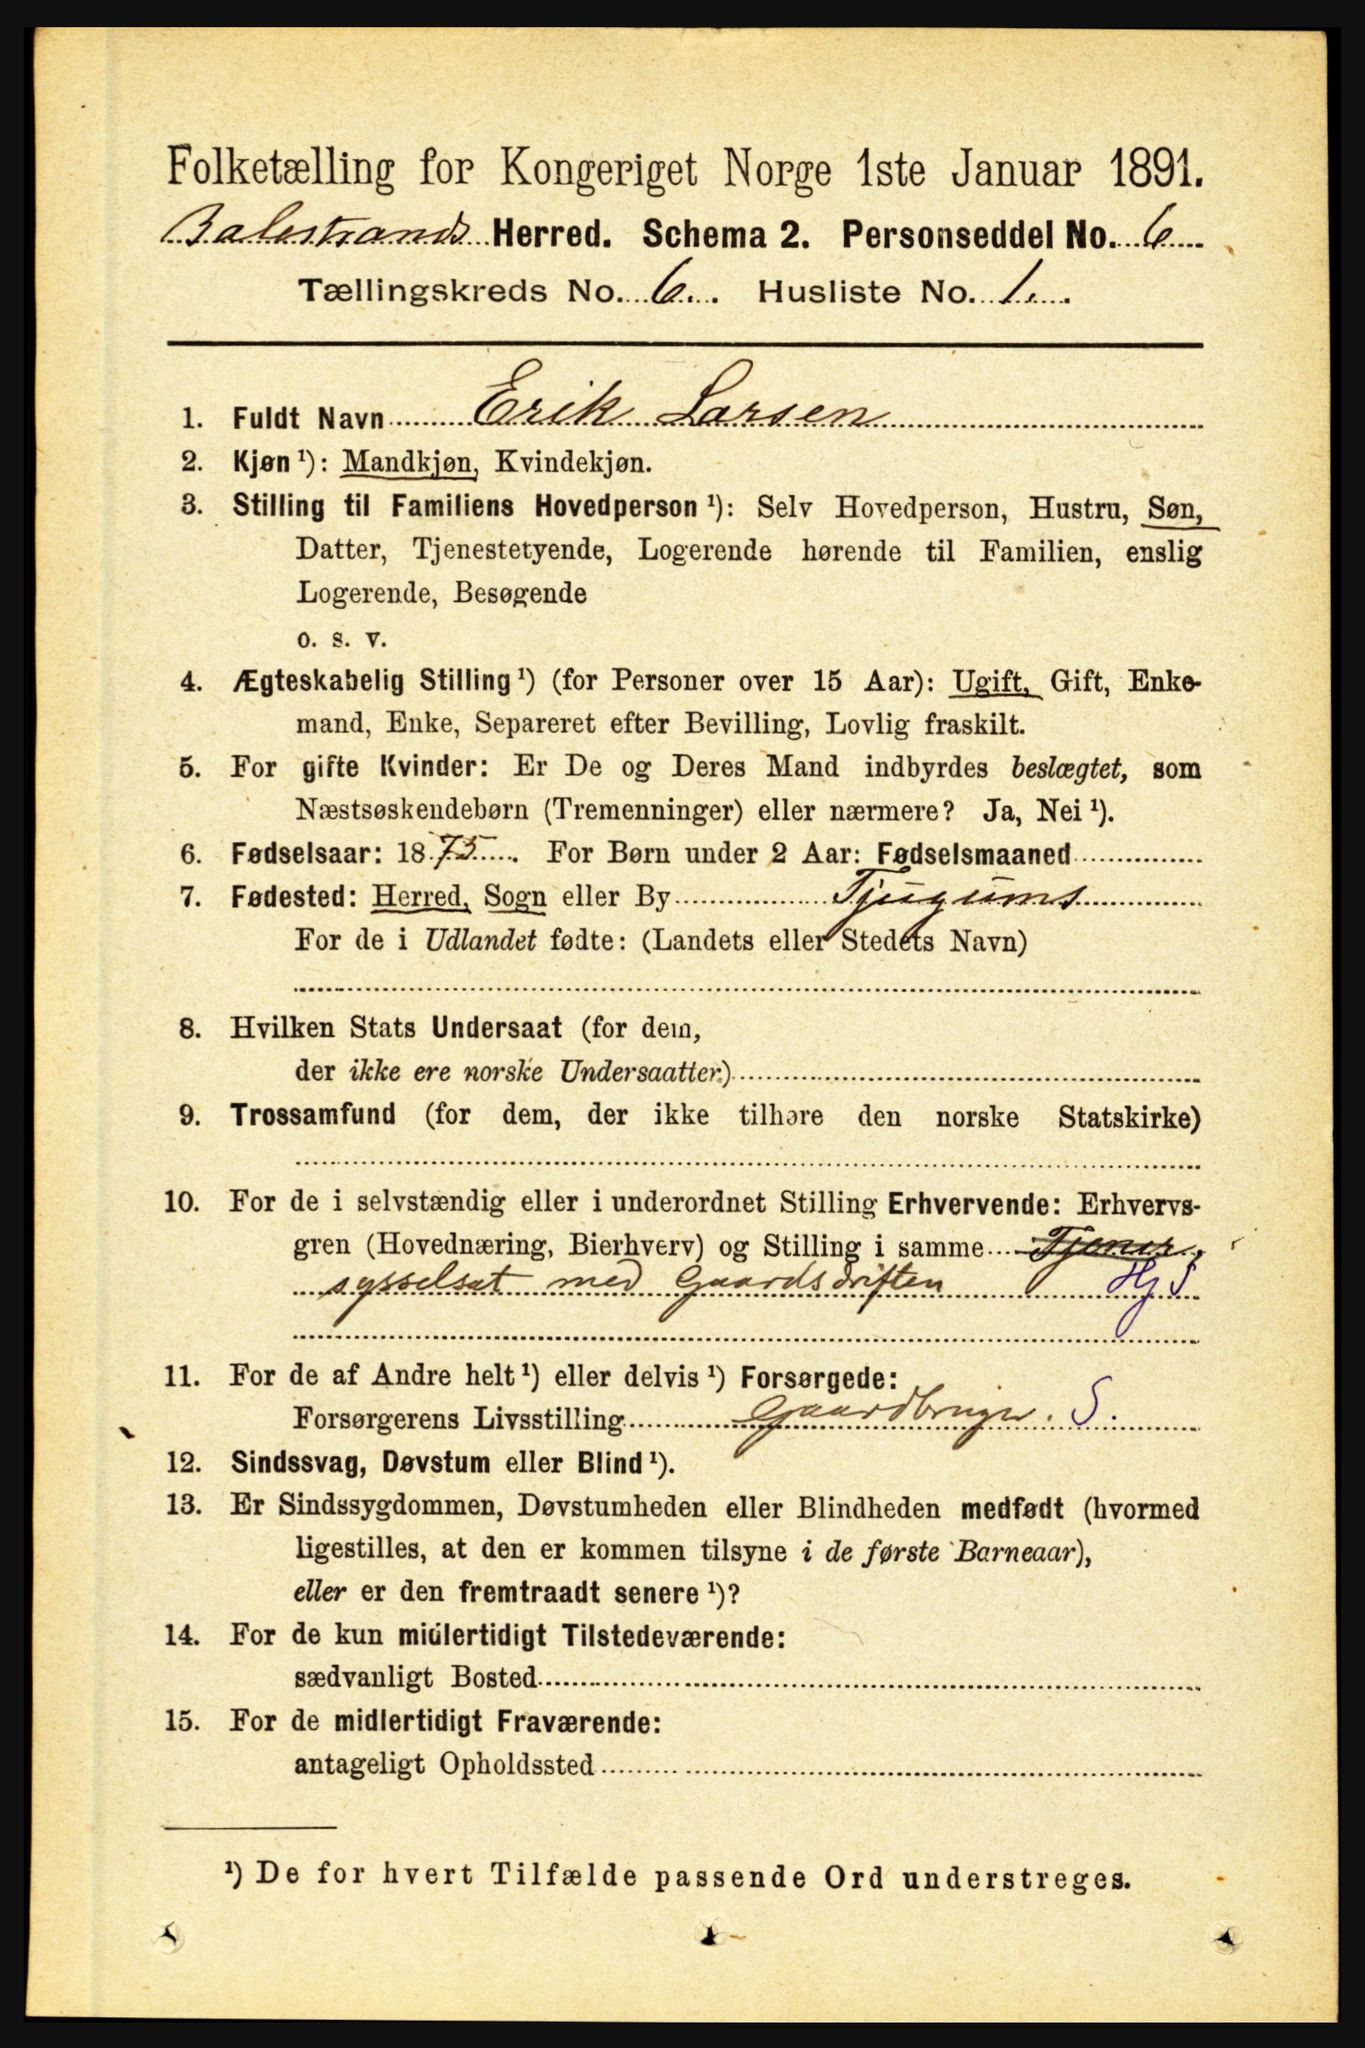 Folketælling for Kongeriget Norge 1ste Januar 1891.
Balestrands Herred. Schema 2. Personseddel No. 6
Tællingskreds No. 6. Husliste No. 1.
1. Fuldt Navn Erik Larsen
2. Kjøn ¹): Mandkjøn, Kvindekjøn.
3. Stilling til Familiens Hovedperson ¹): Selv Hovedperson, Hustru, Søn,
Datter, Tjenestetyende, Logerende hørende til Familien, enslig
Logerende, Besøgende
o. s. v.
4. Ægteskabelig Stilling ¹) (for Personer over 15 Aar): Ugift, Gift, Enke-
mand, Enke, Separeret efter Bevilling, Lovlig fraskilt.
5. For gifte Kvinder: Er De og Deres Mand indbyrdes beslægtet, som
Næstsøskendebørn (Tremenninger) eller nærmere? Ja, Nei ¹).
6. Fødselsaar: 1875. For Børn under 2 Aar: Fødselsmaaned
7. Fødested: Herred, Sogn eller By Tjugums
For de i Udlandet fødte: (Landets eller Stedets Navn)
8. Hvilken Stats Undersaat (for dem,
der ikke ere norske Undersaatter.)
9. Trossamfund (for dem, der ikke tilhøre den norske Statskirke)
10. For de i selvstændig eller i underordnet Stilling Erhvervende: Erhvervs-
gren (Hovednæring, Bierhverv) og Stilling i samme Tjener,
sysselsat med Gaardsdriften Hj S
11. For de af Andre helt ¹) eller delvis ¹) Forsørgede:
Forsørgerens Livsstilling Gaardbruger. S.
12. Sindssvag, Døvstum eller Blind ¹).
13. Er Sindssygdommen, Døvstumheden eller Blindheden medfødt (hvormed
ligestilles, at den er kommen tilsyne i de første Barneaar),
eller er den fremtraadt senere ¹)?
14. For de kun midlertidigt Tilstedeværende:
sædvanligt Bosted
15. For de midlertidigt Fraværende:
antageligt Opholdssted
¹) De for hvert Tilfælde passende Ord understreges.